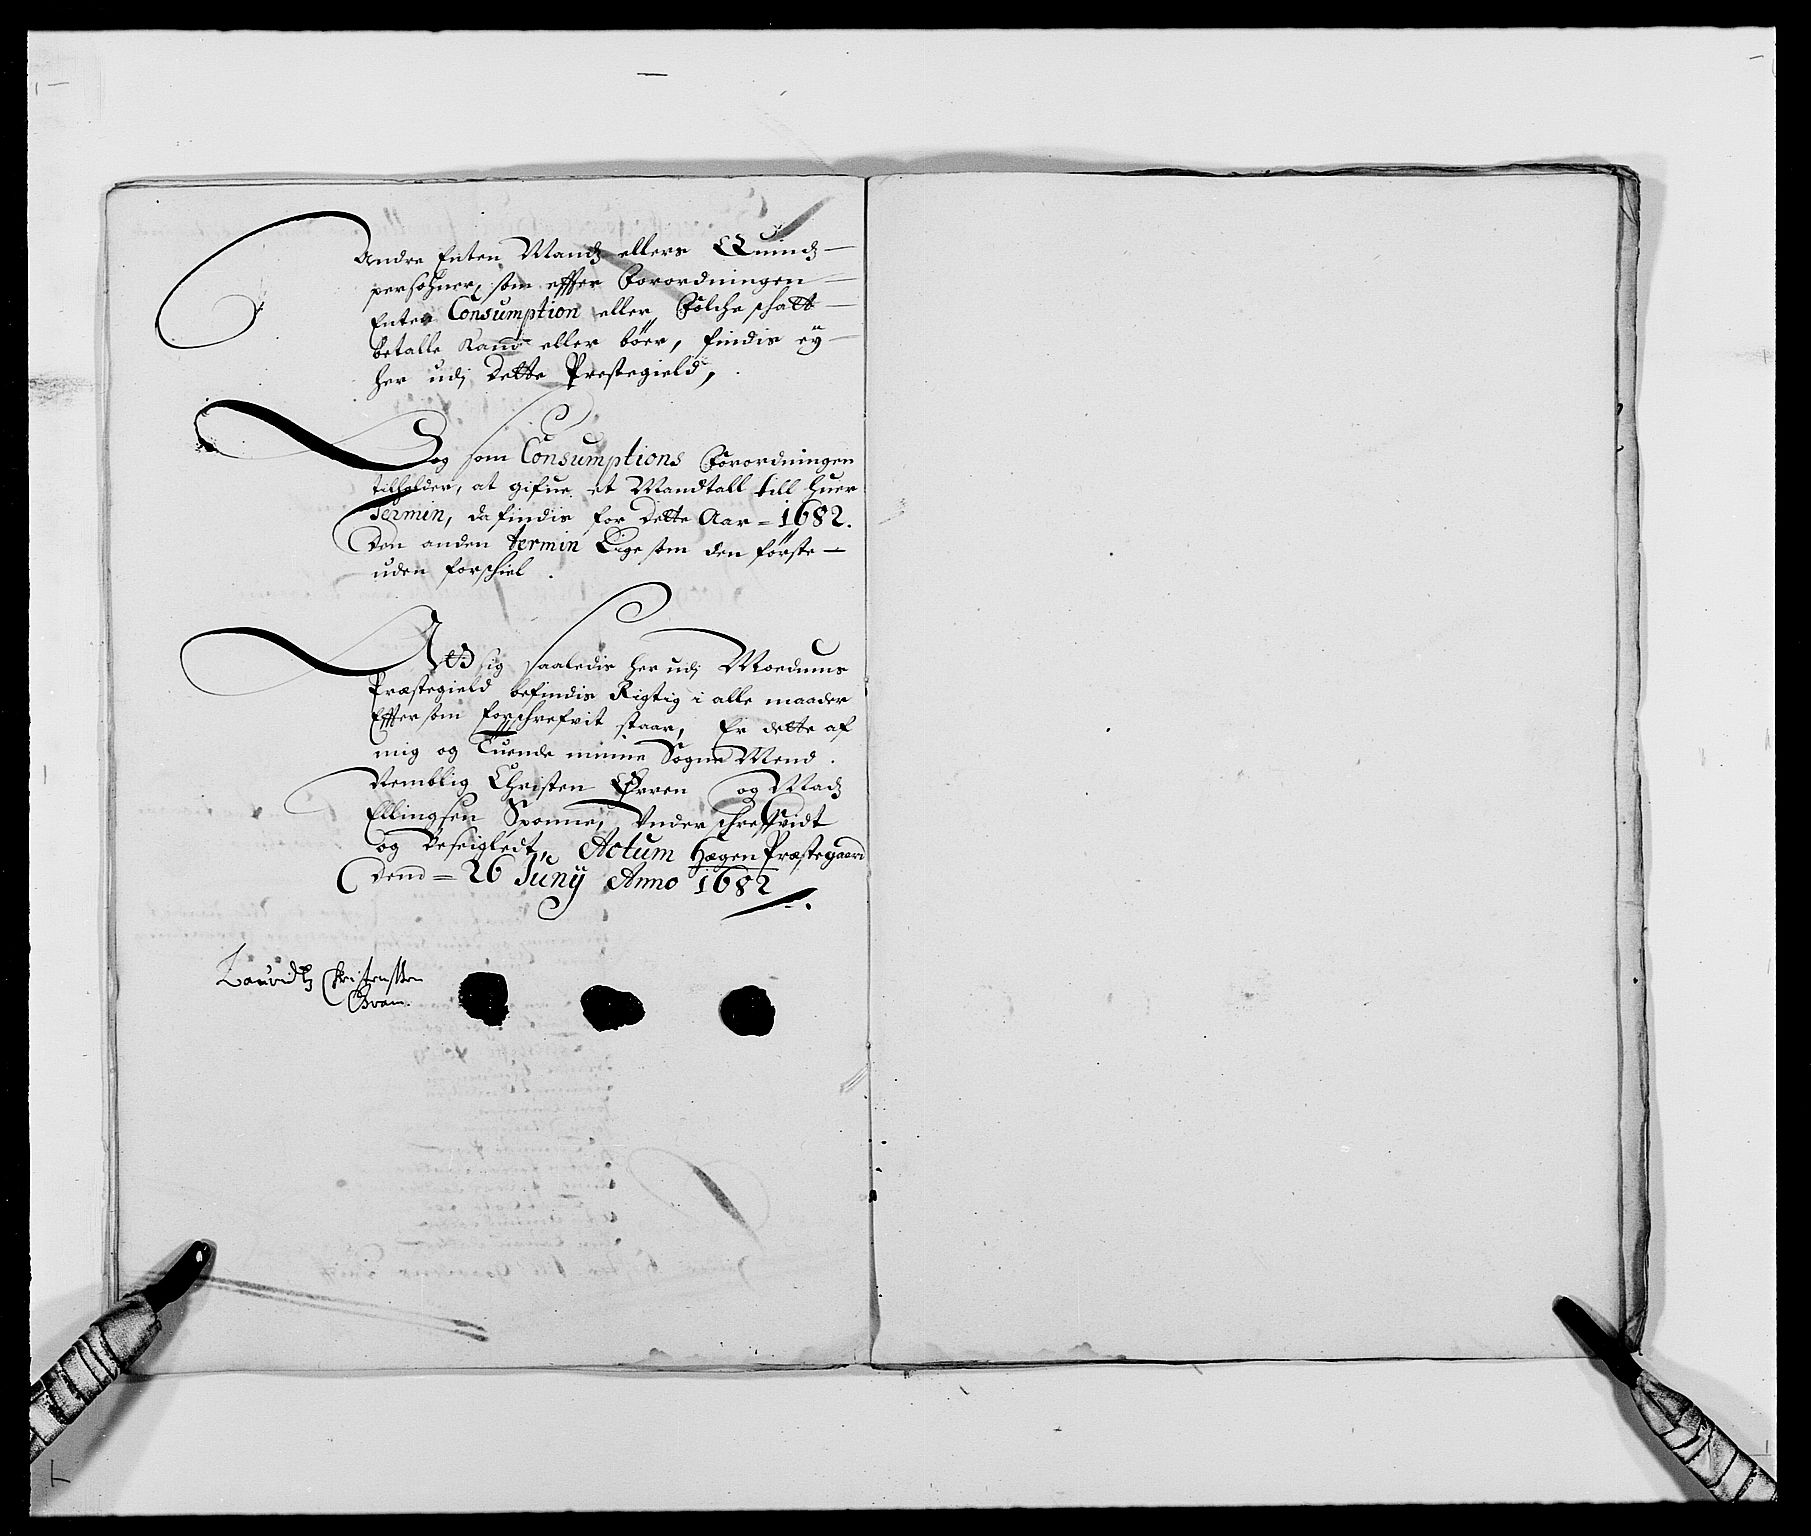 Andre Enten Mandz ellers Quindz
persohner, som effter Forordningen
Enten Consumption eller Folche schatt
betalle kand eller böer, findis eÿ
her udj dette Prestegield,
Og som Consumptions Forordningen
tilholder, at gifue et Mandtall till huer
Termin, da findis for dette Aar = 1682.
Den anden termin Lige som den förste
uden forschiel.
At sig saaledis her udj Moedums
Præstegield befindis Rigtig i alle maader
Effter som forschrefvit staar, Er dette af
mig og Tuende minne Sogne Mend.
Nemblig Christen og Madz
Ellingsen Sponne, Underschreffvidt
og Beseigledt, Actum Hægen Præstegaard
Dend = 26 Junij Anno 1682
Lauridtz Christenssen
Gram.